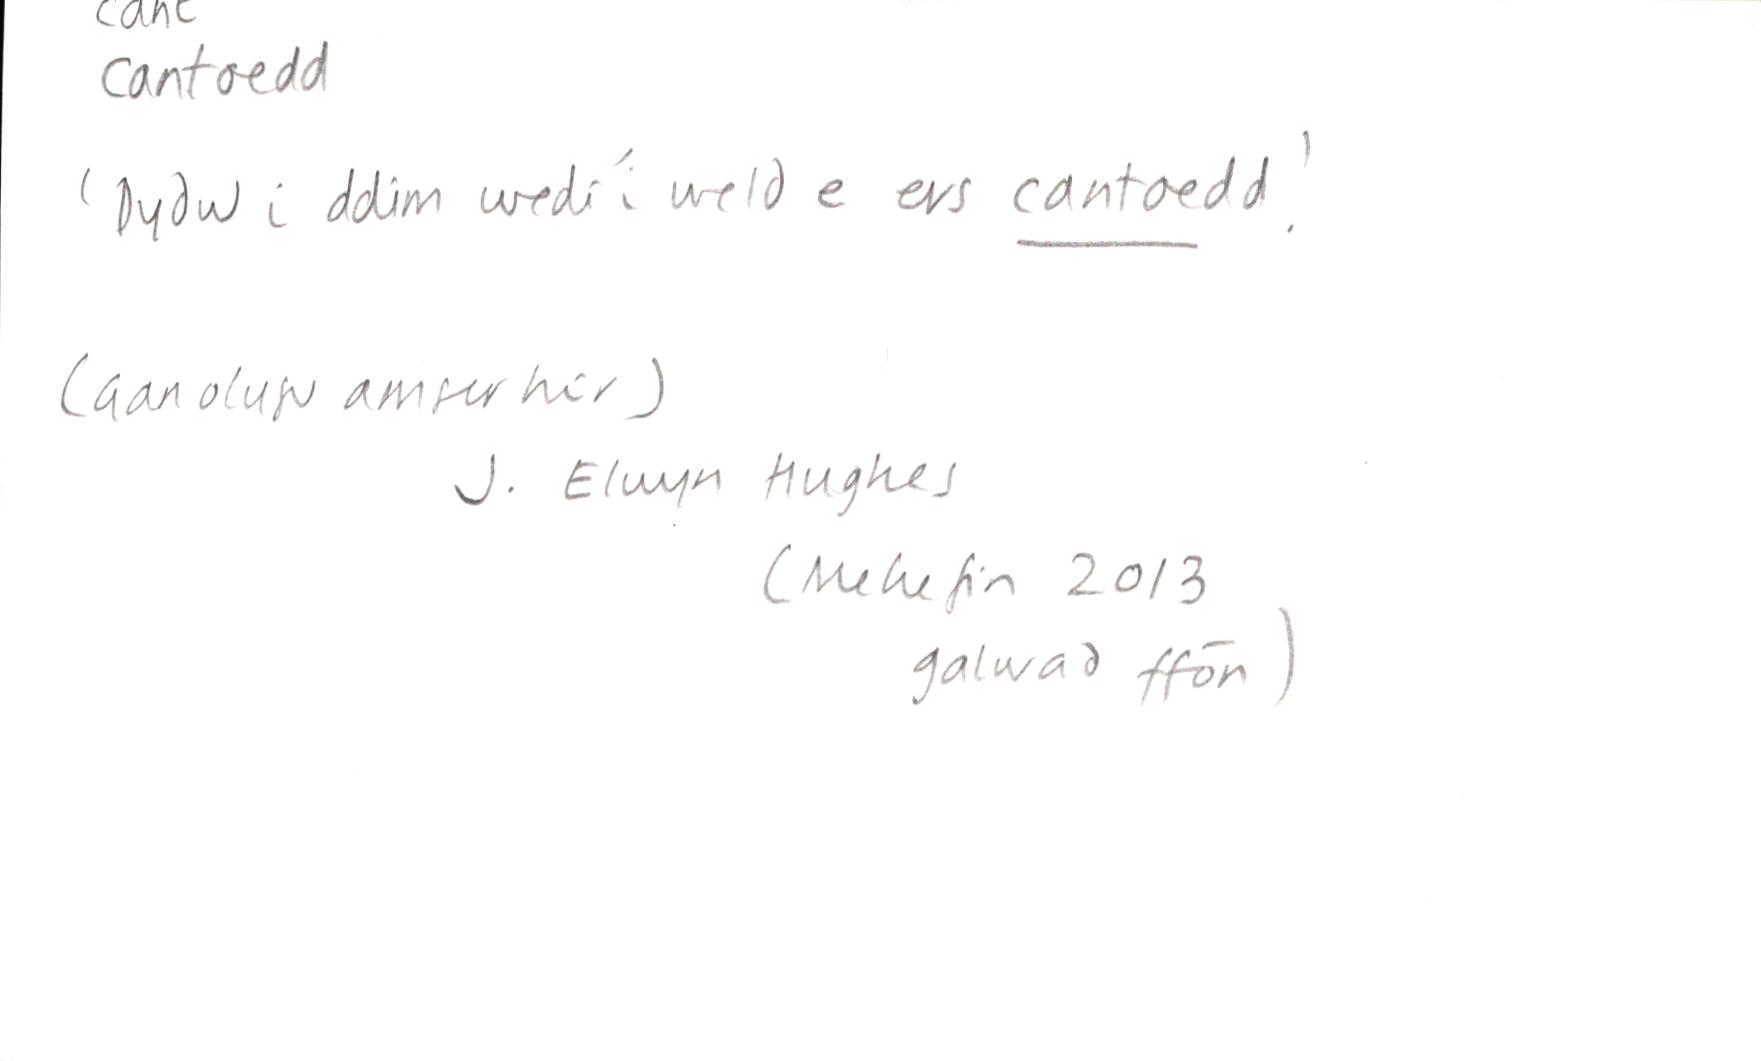 cant
cantoedd
'Dydw i ddim wedi'i weld e ers cantoedd.'
(Gan olygu amser hir)
J. Elwyn Hughes
(Mehefin 2013
galwad ffôn)